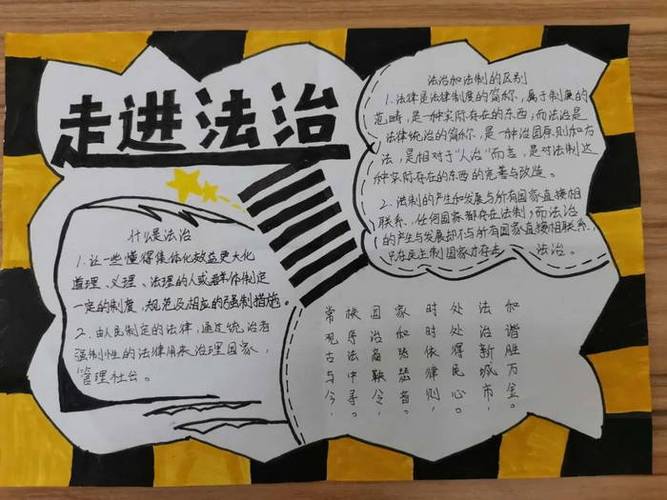 走进法治
什么是法治
1.让一些懂得集体化效益更大化
道理、义理、法理的人或群体制定
一定的制度,规范及相应的强制措施。
2.由人民制定的法律,通过统治者
强制性的法律用来治理国家,
管理社会。
法治和法制的区别
1.法律是法律制度的简称,属于制度的
范畴,是一种实际存在的东西;而法治是
法律统治的简称,是一种治国原则和方
法,是相对于"人治"而言,是对法制这
种实际存在的东西的完善与改造。
2.法制的产生和发展与所有国家直接相
联系,任何国家都存在法制;而法治
的产生与发展却不与所有国家直接相联系,
只在民主制国家才存在 法治。
常观古与今,
秩序法中寻。
国治商鞅令,
家和琴瑟音。
时时依律则,
处处得民心。
法治新城市,
和谐胜万金。